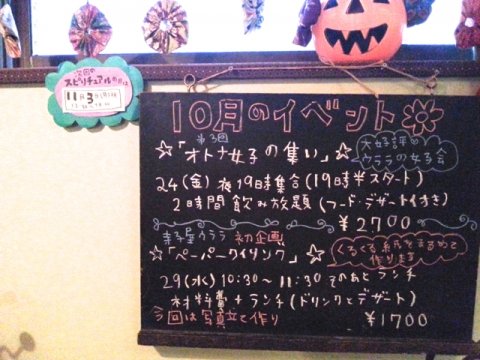 次回の
スピリチュアルの日は
11月3
10月のイベント
第3回
☆「オトナ女子の集い」☆
大好評の
ウララの女子会
24(金) 夜19時集合(19時半スタート)
2時間飲み放題 (フード・デザート付き)
¥2700
寺子屋ウララ 初企画
☆「ペーパークイリング」☆
くるくる紙をまるめて
作ります
29(水) 10:30～11:30 そのあとランチ
材料費+ランチ(ドリンクとデザート)
今回は写真立て作り
¥1700